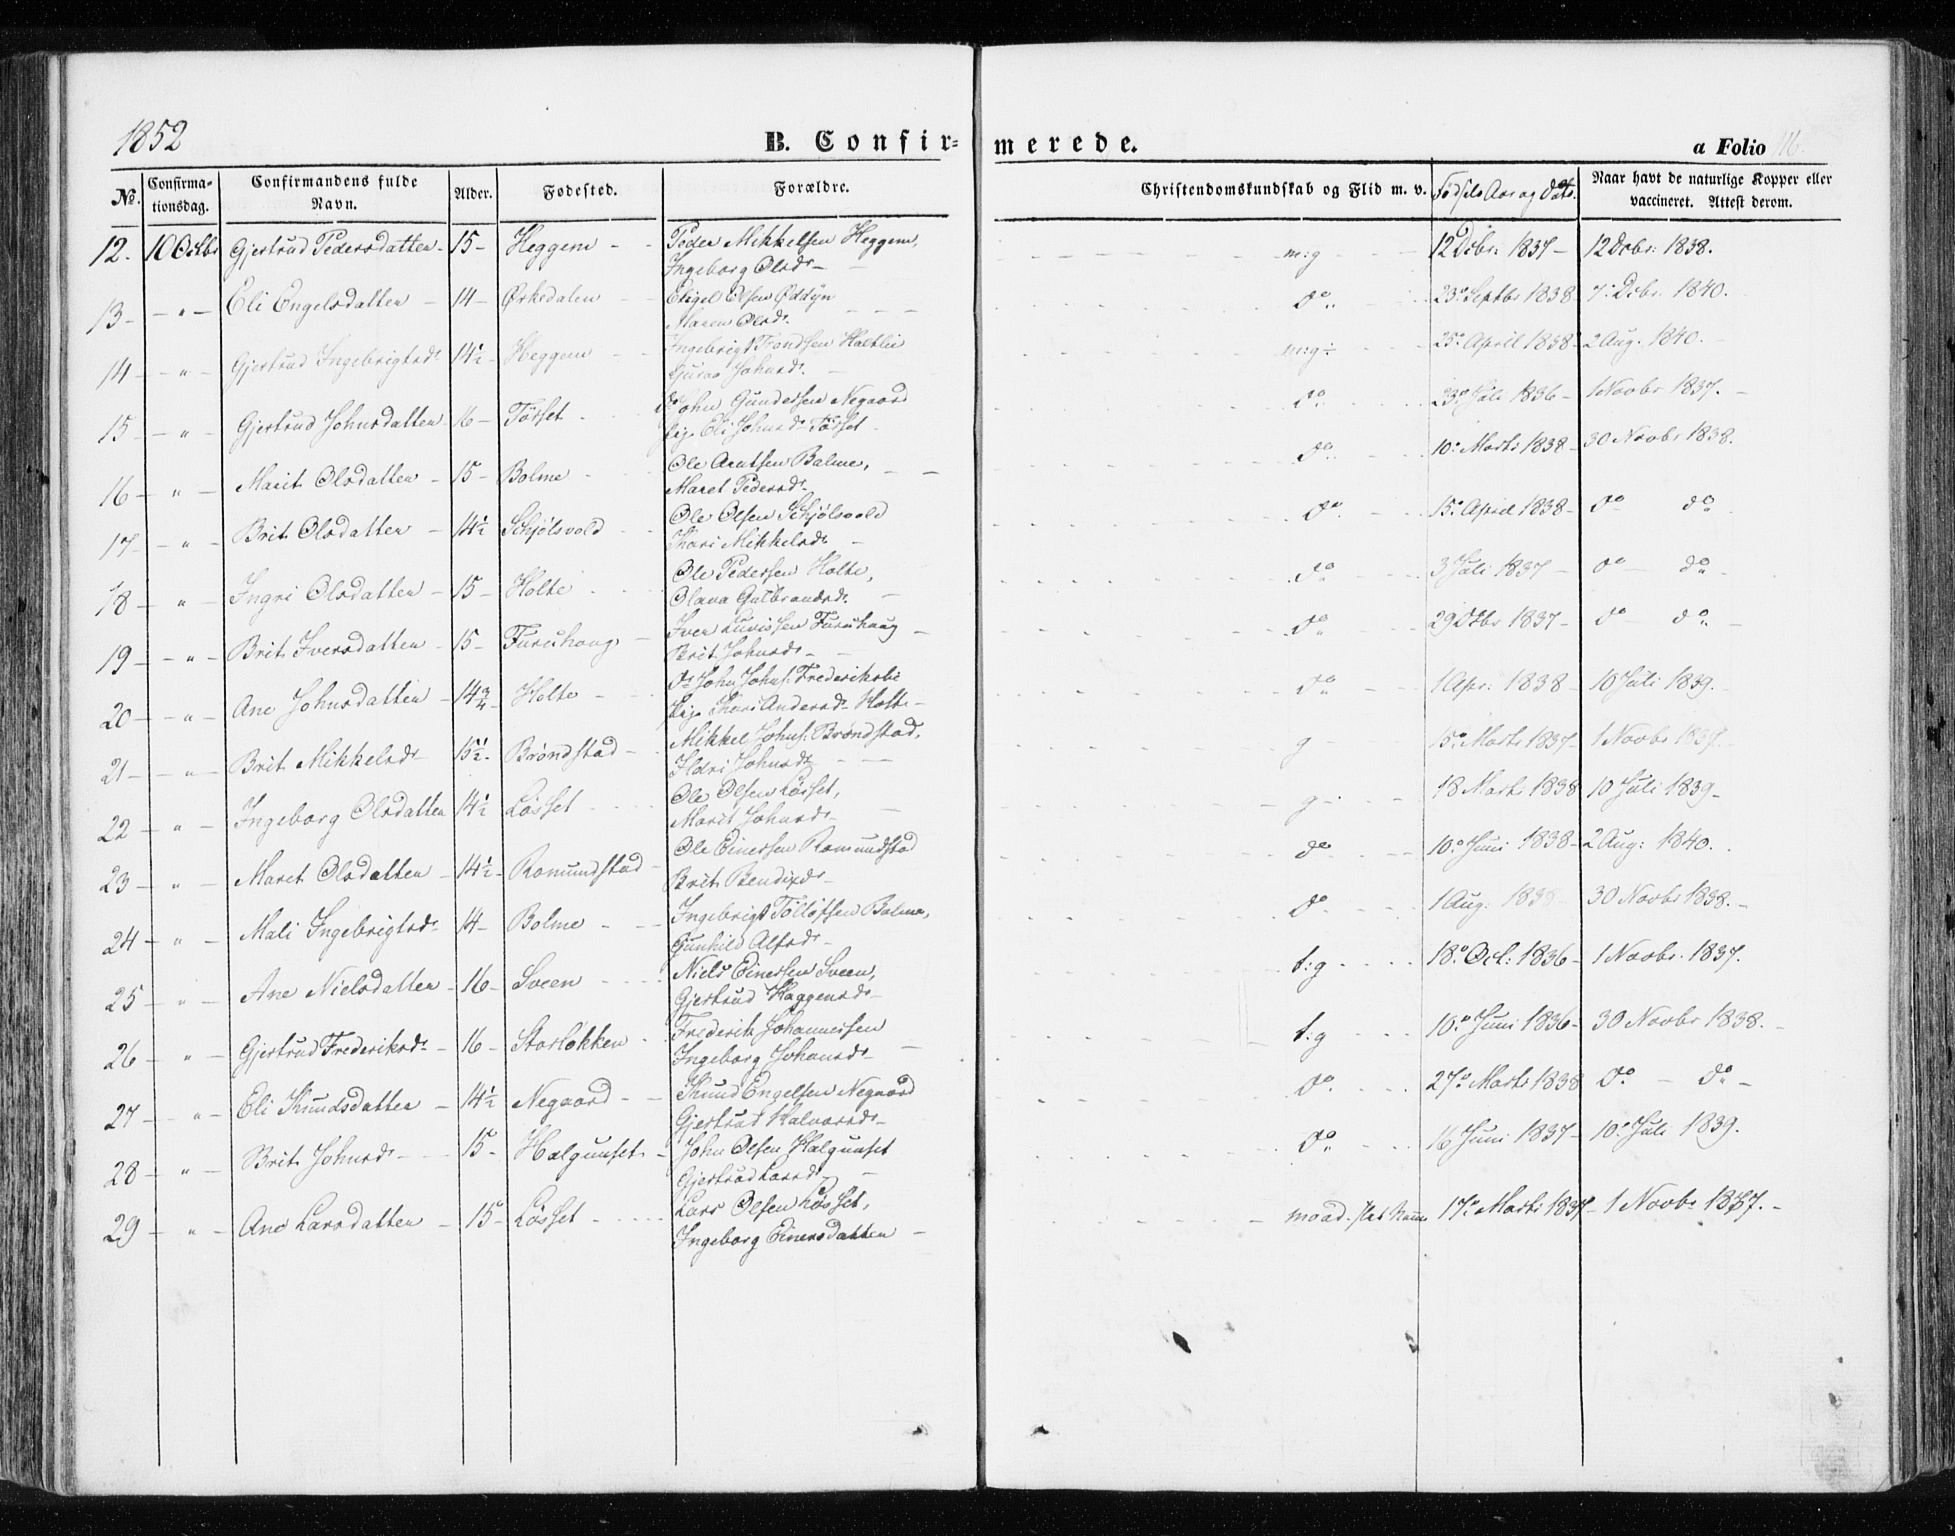 1852
B. Confirmerede.
a Folio 116.
No.
Confirmationsdag.
Confirmandens fulde Navn.
Alder.
Fødested.
Forældre.
Christendomskundskab og Flid m. v.
Fødsels Aar og Dato.
Naar havt de naturlige Kopper eller vaccineret. Attest derom.
12. 10 Octbr Gjertrud Pedersdatter 15 Heggem Peder Mikkelsen Heggem, m:g 12 Dcbr: 1837 12 Dcbr: 1838.
Ingeborg Olsdr
13 " Eli Engelsdatter 14 Ørkedalen Engel Olsen Oddyn do 23. Septbr 1838 7. Dcbr. 1840.
Maren Olsdr
14 " Gjertrud Ingebrigtsdr 14½ Heggem Ingebrigt Trondsen m:g÷ 25. April 1838 2 Aug. 1840.
Guroe Johnsdr
15 " Gjertrud Johnsdatter 16 Tørset John Gundersen Negaard do 23. Juli 1836 1 Novbr 1837.
Pige Eli Johnsdr Tørset
16 " Marit Olsdatter 15 Bolme Ole Arntsen Bolme, do 10. Marts 1838 30 Novbr 1838.
Maret Pedersdr
17 " Brit Olsdatter 14½ Schjølsvold Ole Olsen Schjølsvold do 15. April 1838 do do
Kari Mikkelsdr
18 " Ingri Olsdatter 15 Holte Ole Pedersen Holte, do 3 Juli 1837 do do
Olava Gulbrandsdr
19 " Brit Iversdatter 15 Furuhaug Iver Furuhaug do 29 Octbr 1837 do do
Brit Johnsdr
20 " Ane Johnsdatter 14¾ Holte John Johns. Frederiksli do 1 Apr: 1838 10 Juli 1839.
Pige Kari Andersdr Holte
21 " Brit Mikkelsdr 15½ Brøndstad Mikkel Johns. Brøndstad, g 15. Marts 1837 1 Novbr 1837.
Ildri Johnsdr
22 " Ingeborg Olsdatter 14½ Løsset Ole Olsen Løsset, g 18 Marts 1838 10 Juli 1839
Marit Johnsdr
23 " Maret Olsdatter 14½ Romundstad Ole Einersen Romundstad do 10. Juni 1838 2 Aug: 1840.
Brit Bendixdr
24 " Mali Ingebrigtsdr 14 Bolme Ingebrigt Tølløfsen Bolme, do 1 Aug. 1838 30 Novbr 1838.
Gunhild Alfsdr
25 " Ane Nielsdatter 16 Sveen Niels Einersen Sveen, t:g 18. Oct: 1836 1 Novbr. 1837.
Gjertrud Haagensdr
26 " Gjertrud Frederiksdr 16 Storløkken Frederik Johannessen t:g 10. Juni 1836 30 Novbr 1838.
Ingeborg Johansdr
27 " Eli Knudsdatter 14½ Negaard Knud Engelsen Negaard do 27. Marts 1838 do do
Gjertrud Halvorsdr
28 " Brit Johnsdr 15 Halgunset John Olsen Halgunset do 16 Juni 1837 10. Juli 1839.
Gjertrud Larsdr
29 " Ane Larsdatter 15 Løsset Lars Olsen Løsset, maad. 17. Marts 1837 1 Novbr 1837.
Ingeborg Einersdatter